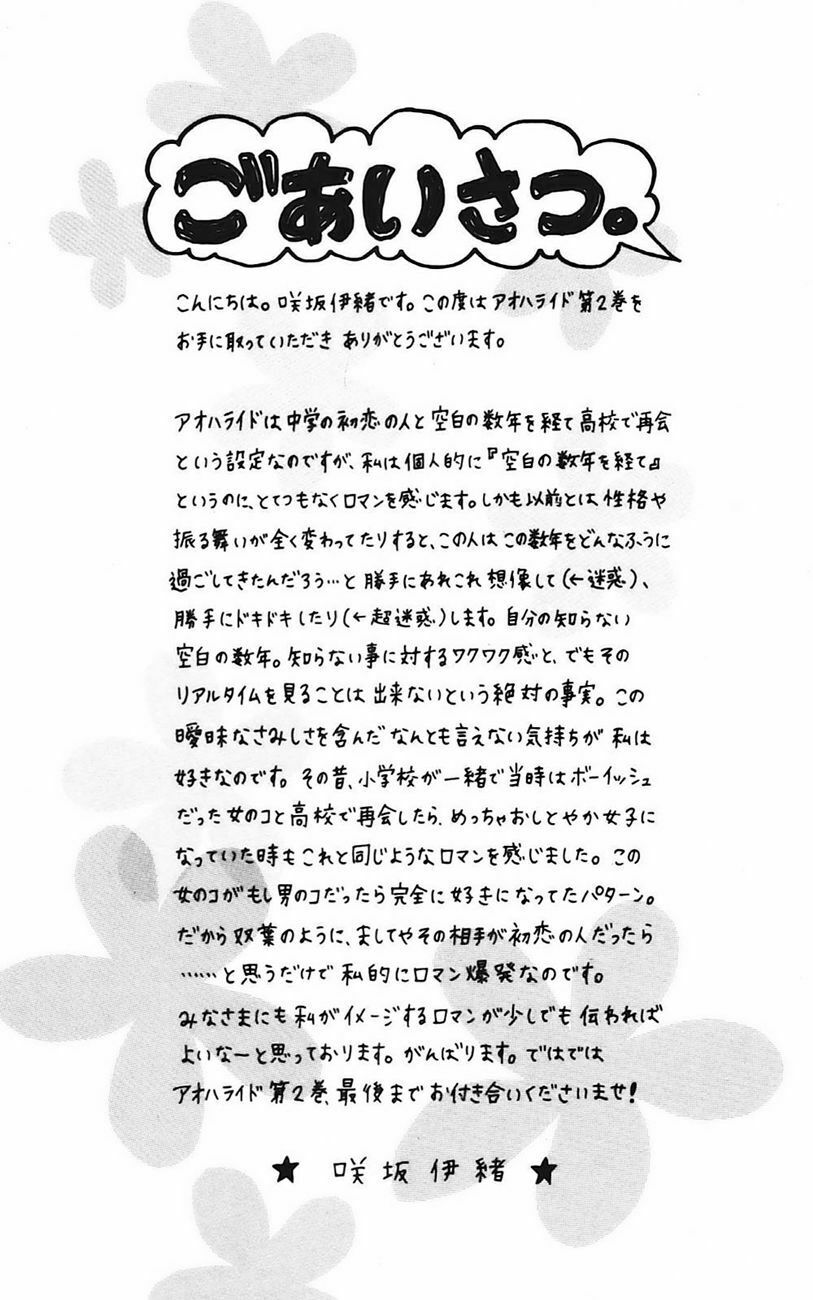 ごあいさつ。
こんにちは。咲坂伊緒です。この度はアオハライド第2巻を
お手に取っていただき ありがとうございます。
アオハライドは中学の初恋の人と空白の数年を経て高校で再会
という設定なのですが、私は個人的に『空白の数年を経て』
というのに、とてつもなくロマンを感じます。しかも以前とは、性格や
振る舞いが全く変わってたりすると、この人は この数年をどんなふうに
過ごしてきたんだろう…と 勝手にあれこれ想像して(←迷惑)、
勝手にドキドキしたり(←超迷惑)します。自分の知らない
空白の数年。知らない事に対するワクワク感と、でもその
リアルタイムを見ることは 出来ないという絶対の事実。この
曖昧なさみしさを含んだ なんとも言えない気持ちが 私は
好きなのです。その昔、小学校が一緒で当時はボーイッシュ
だった女のコと高校で再会したら、めっちゃおしとやか女子に
なっていた時も これと同じようなロマンを感じました。この
女のコがもし男のコだったら完全に好きになってたパターン。
だから双葉のように、ましてやその相手が初恋の人だったら
……と思うだけで 私的にロマン爆発なのです。
みなさまにも 私がイメージするロマンが少しでも 伝われば
よいなーと思っております。がんばります。ではでは
アオハライド第2巻、最後まで お付き合いくださいませ!
★ 咲坂伊緒 ★